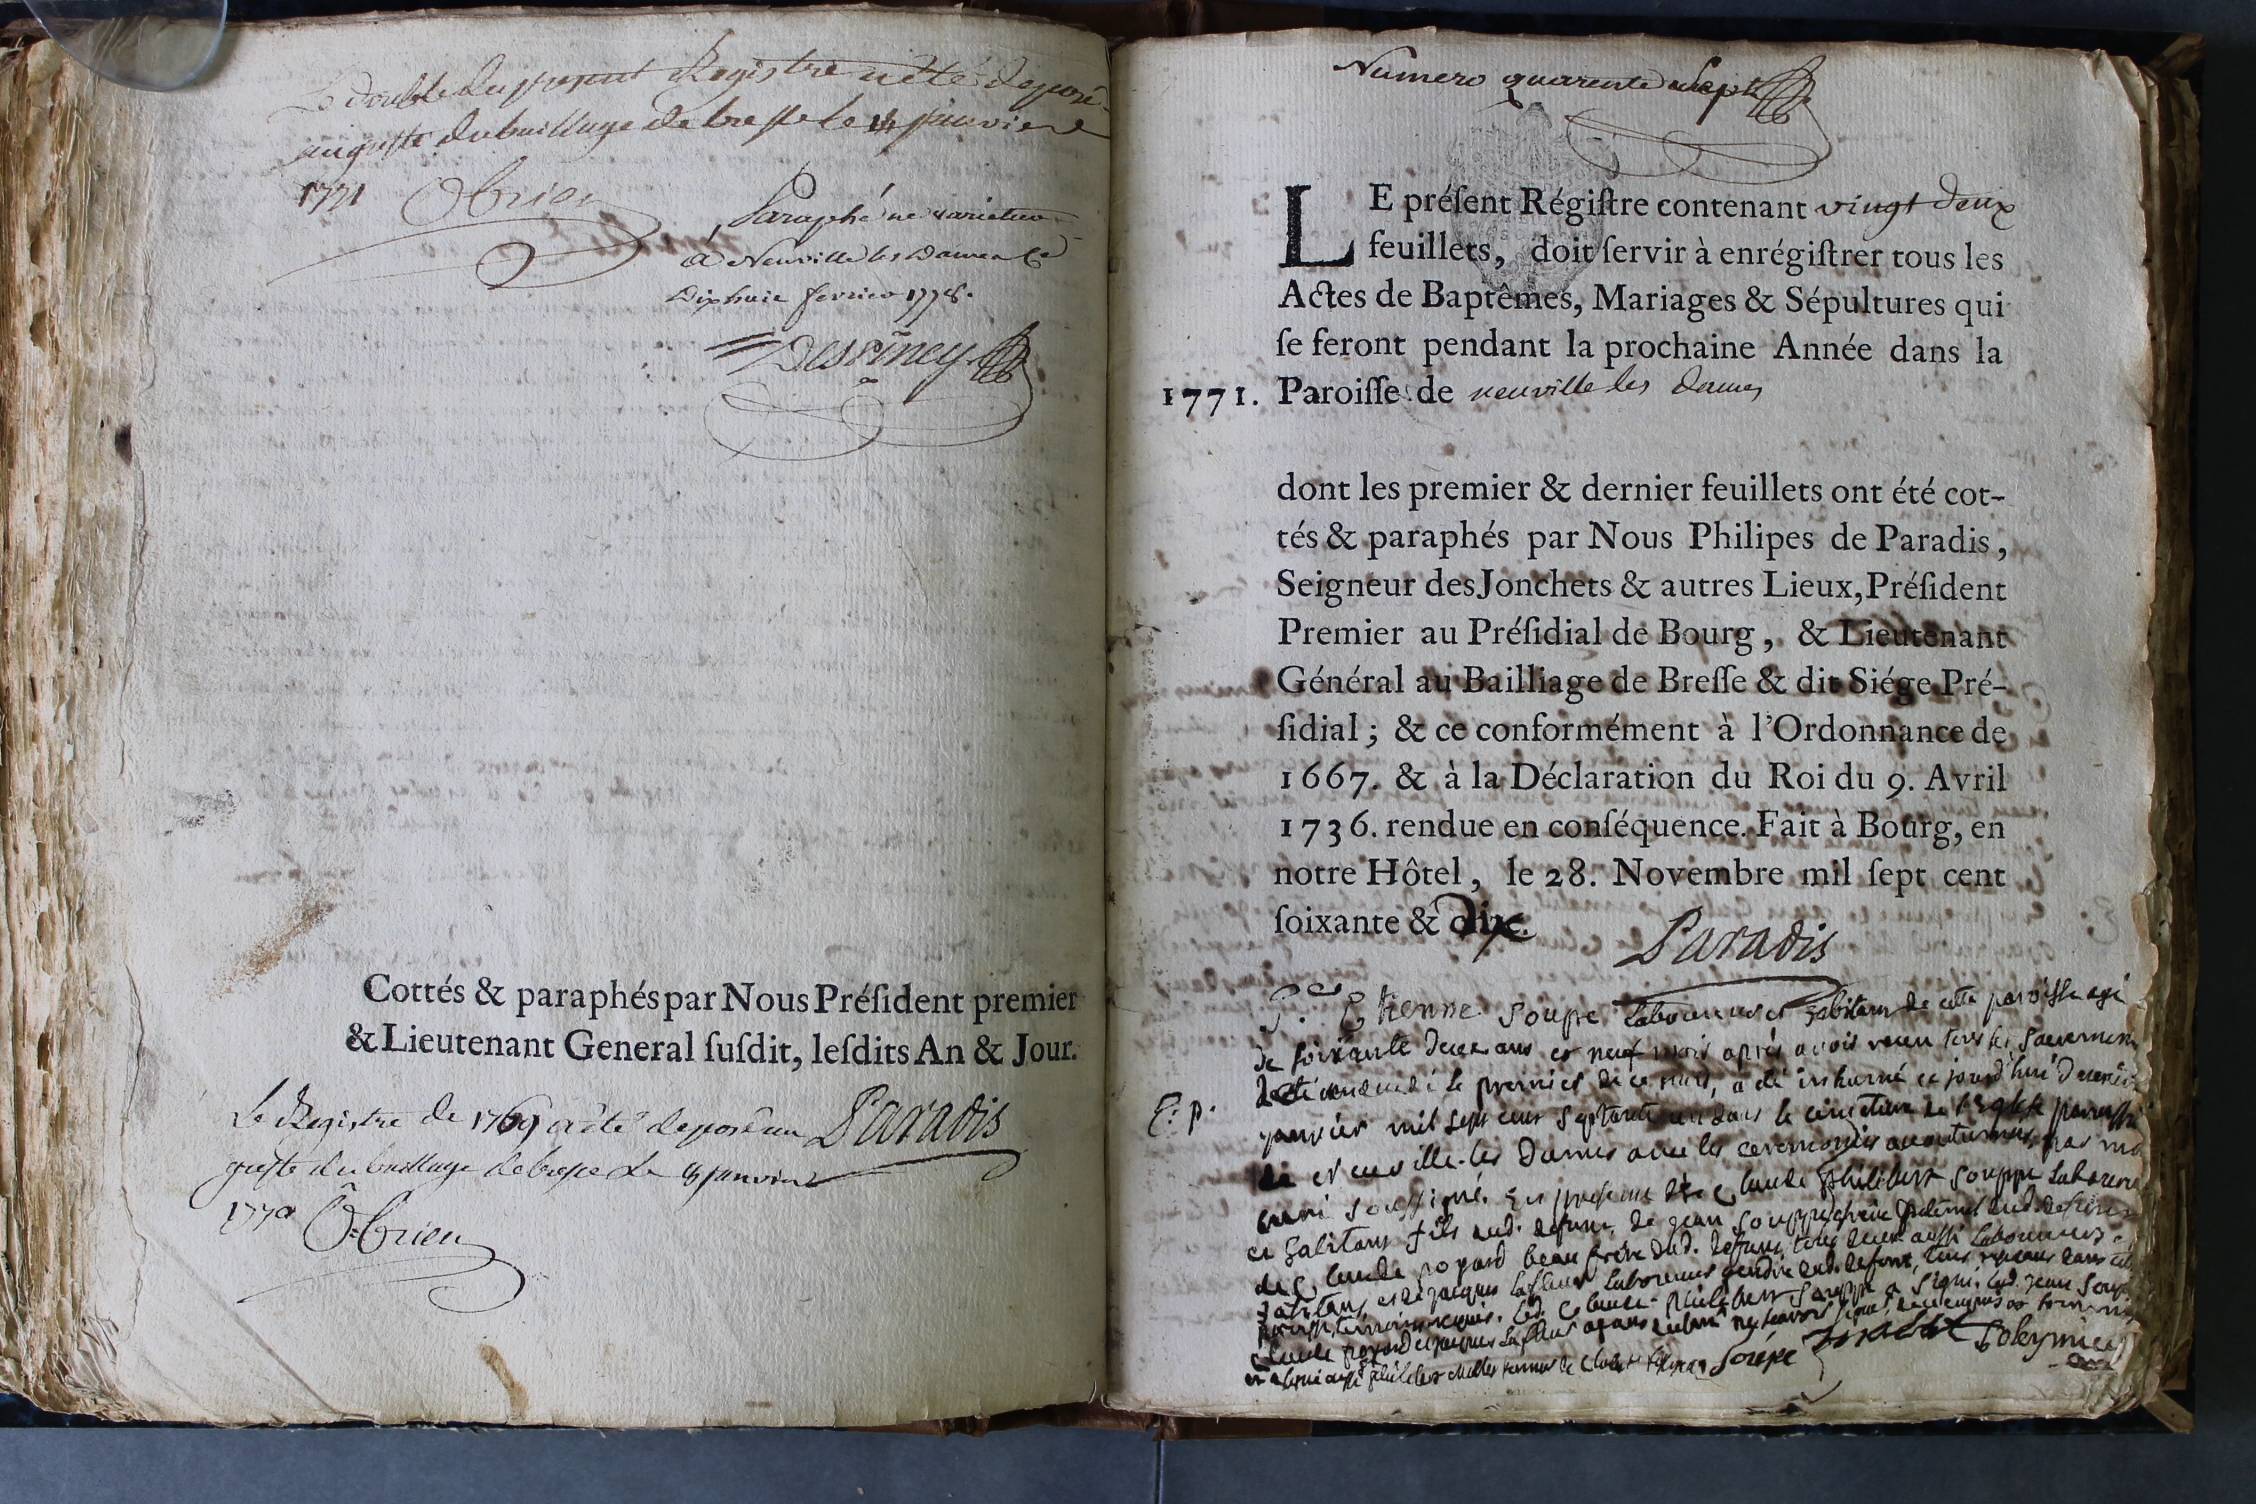 Le double du present Registre a êté deposé
au greffe du bailliage de bresse le 14 janvier
1771 Obrien
Paraphé ne varietur
a Neuville les Dames le
Dixhuit fevrier 1778.
Cottés & paraphés par Nous Préſident premier
& Lieutenant General ſuſdit, leſdits An & Jour.
Le Registre de 1769 a êté deposé au Paradis
greffe du bailliage de bresse le janvier
1770 Obrien
Numero quarente sept
LE préſent Régiſtre contenant vingt deux
feuillets, doit ſervir à enrégiſtrer tous les
Actes de Baptêmes, Mariages & Sépultures qui
ſe feront pendant la prochaine Année dans la
1771. Paroiſſe de neuville les dames
dont les premier & dernier feuillets ont été cot-
tés & paraphés par Nous Philipes de Paradis,
Seigneur des Jonchets & autres Lieux, Préſident
Premier au Préſidial de Bourg, & Lieutenant
Général au Bailliage de Breſſe & dit Siége Pré-
ſidial ; & ce conformément à l'Ordonnance de
1667. & à la Déclaration du Roi du 9. Avril
1736. rendue en conſéquence. Fait à Bourg, en
notre Hôtel, le 28. Novembre mil ſept cent
ſoixante & dix.
Paradis
Etienne Soupe laboureur et habitant de cette paroisse agé
de soixante deux ans et neuf mois après avoir receu tous les sacremens
decedé le premier de ce mois, a été inhumé ce jourd'hui deuxie
E. p. janvier mil sept cent septante un dans le cimetiere de l'Eglise paroissi
de Neuville-les Dames avec les ceremonies accoutumées, par moi
curé soussigné. En presence de Claude Philibert Souppe laboureur
et habitant fils dud. defunt, de jean Souppe frère dud. defunt
de Claude poyard beau frère dud. defunt, tous deux aussi laboureurs
habitans, et de jacques lafleur laboureur gendre dud. defunt, tous
paroisse, temoins requis. led. Claude-philibert Souppe a signé, led. jean Soup
Claude poyard et jacques lafleur
philibert Soupe